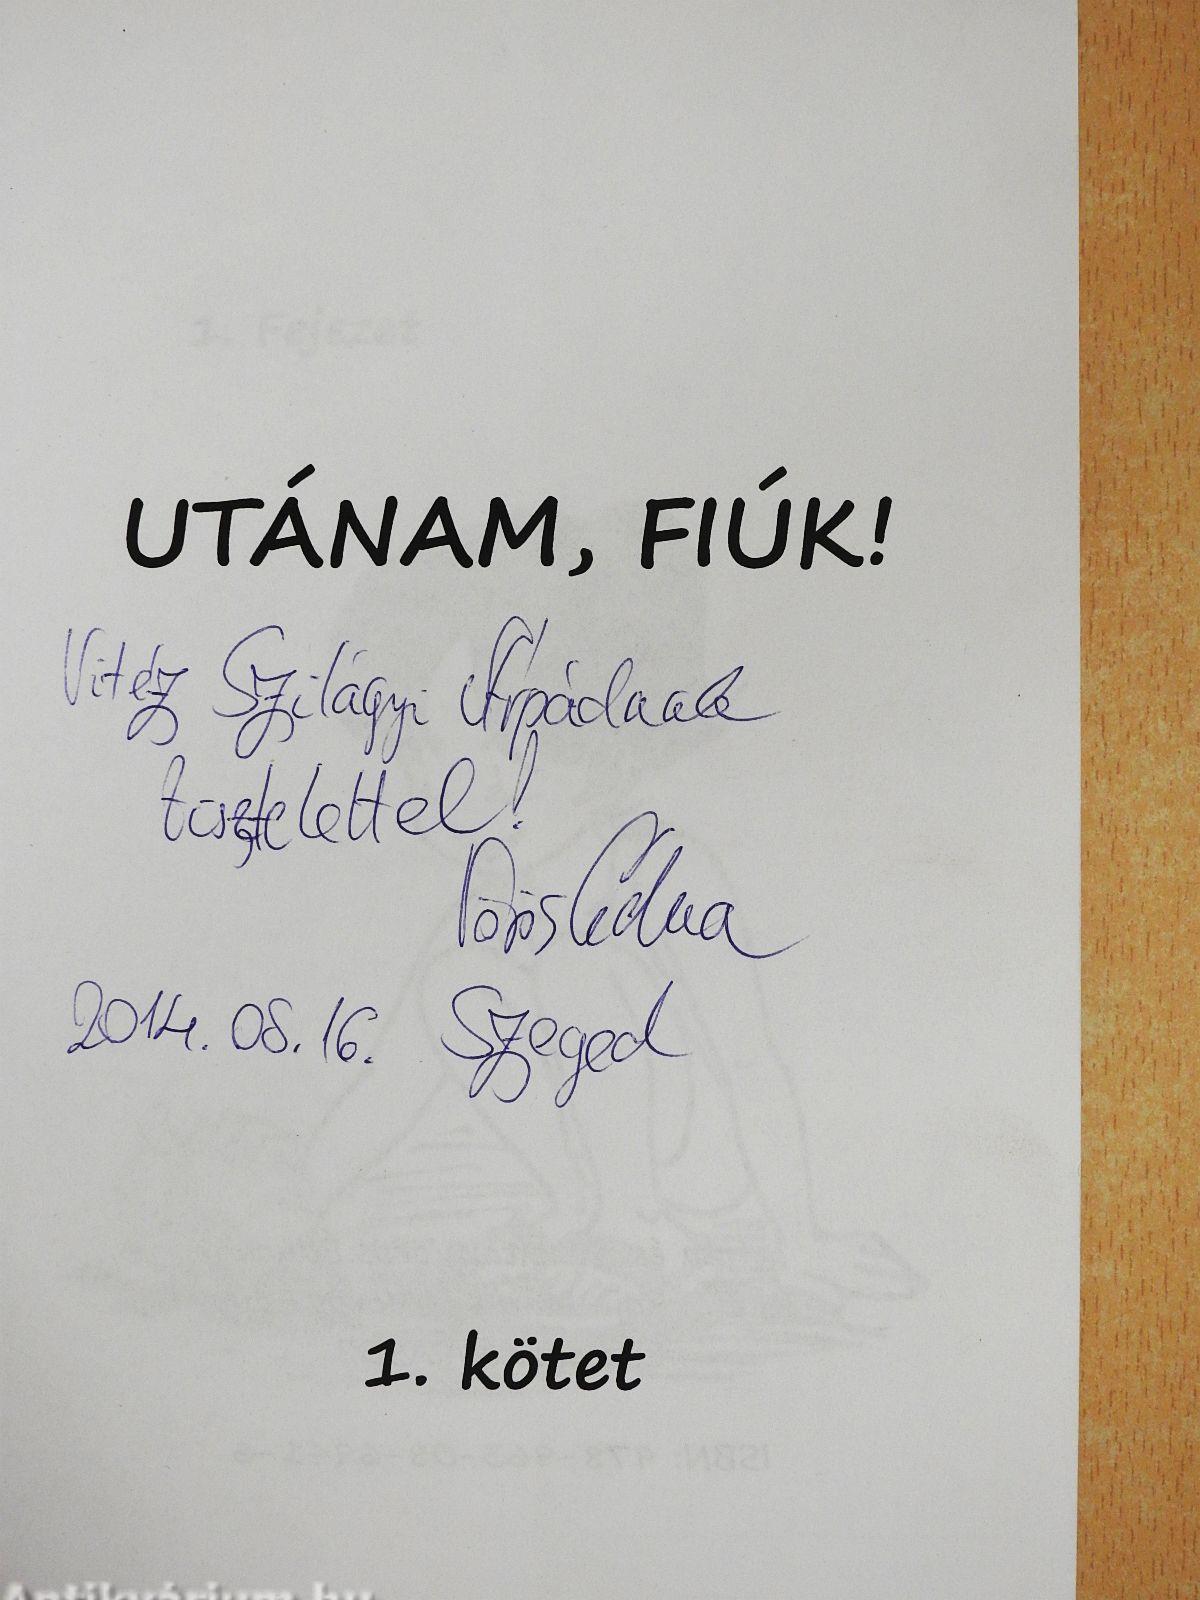 1. Fejezet
UTÁNAM, FIÚK!
Vitéz Szilágyi Árpádnak
tisztelettel!
Vörös Edna
2014. 08. 16. Szeged
1. kötet
Antikvárium.hu